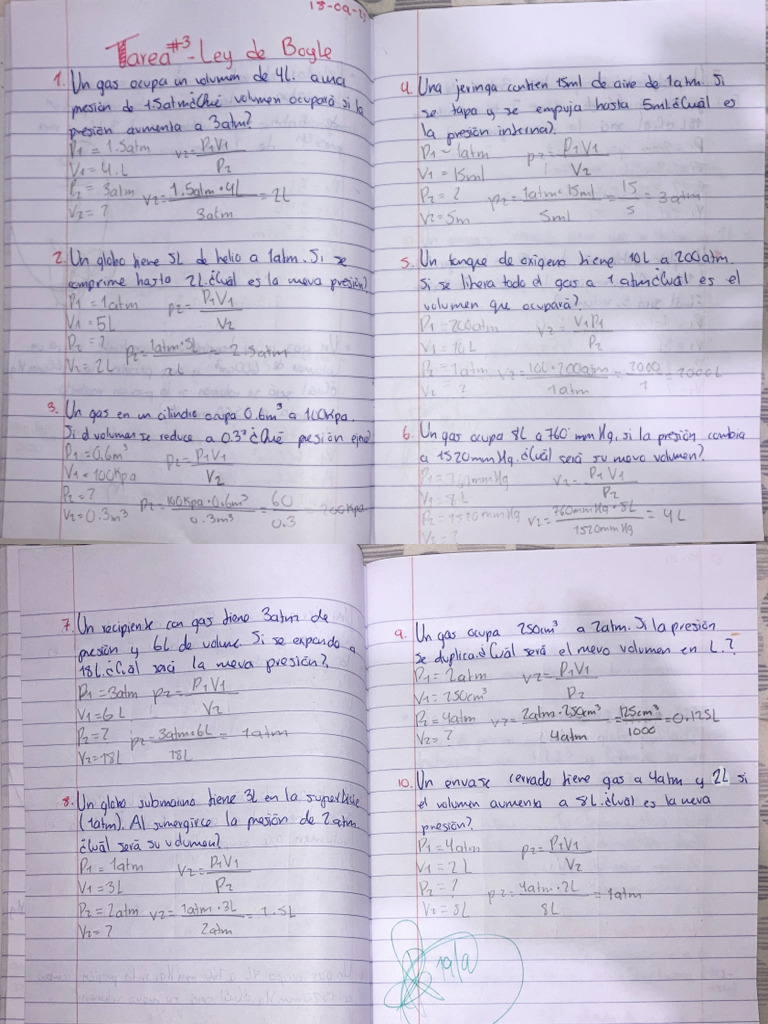 18-09-2
Tarea #3 - Ley de Bogle
1. Un gas ocupa un volumen de 4L. a una
presión de 1.5atm ¿Qué volumen ocupará si la
presión aumenta a 3atm?
P1 = 1.5atm V2 = P1V1 / P2
V1 = 4.L
P2 = 3atm V2 = 1.5atm · 4L / 3atm = 2L
V2 = ?
2. Un globo tiene 5L de helio a 1atm. Si se
comprime hasta 2L ¿Cuál es la nueva presión?
P1 = 1atm P2 = P1V1 / V2
V1 = 5L
P2 = ? P2 = 1atm · 5L / 2L = 2.5atm
V2 = 2L
3. Un gas en un cilindro ocupa 0.6m³ a 100Kpa.
Si el volumen se reduce a 0.3³ ¿Qué presión ejerce?
P1 = 0.6m³ P2 = P1V1 / V2
V1 = 100Kpa
P2 = ? P2 = 100Kpa · 0.6m³ / 0.3m³ = 60 / 0.3 = 200Kpa
V2 = 0.3m³
4. Una jeringa contien 15ml de aire de 1atm. Si
se tapa y se empuja hasta 5ml. ¿Cuál es
la presión interna?
P1 = 1atm P2 = P1V1 / V2
V1 = 15ml
P2 = ? P2 = 1atm · 15ml / 5ml = 15 / 5 = 3atm
V2 = 5m
5. Un tanque de oxigeno tiene 10L a 200atm.
Si se libera todo el gas a 1 atm ¿Cuál es el
volumen que ocupará?
P1 = 200atm V2 = V1P1 / P2
V1 = 10L
P2 = 1atm V2 = 10L · 200atm / 1atm = 2000 / 1 = 2000L
V2 = ?
6. Un gas ocupa 8L a 760 mmHg, si la presión cambia
a 1520mmHg. ¿Cuál será su nuevo volumen?
P1 = 760mmHg V2 = P1V1 / P2
V1 = 8L
P2 = 1520mmHg V2 = 760mmHg · 8L / 1520mmHg = 4L
V2 = ?
7. Un recipiente con gas tiene 3atm de
presión y 6L de volume. Si se expande a
18L. ¿Cuál será la nueva presión?
P1 = 3atm P2 = P1V1 / V2
V1 = 6L
P2 = ? P2 = 3atm · 6L / 18L = 1atm
V2 = 18L
8. Un globo submarino tiene 3L en la superficie
(1atm). Al sumergirce la presión de 2atm
¿Cuál será su volumen?
P1 = 1atm V2 = P1V1 / P2
V1 = 3L
P2 = 2atm V2 = 1atm · 3L / 2atm = 1.5L
V2 = ?
9. Un gas ocupa 250cm³ a 2atm. Si la presión
se duplica. ¿Cuál será el nuevo volumen en L.?
P1 = 2atm V2 = P1V1 / P2
V1 = 250cm³
P2 = 4atm V2 = 2atm · 250cm³ / 4atm = 125cm³ / 1000 = 0.125L
V2 = ?
10. Un envase cerrado tiene gas a 4atm y 2L si
el volumen aumenta a 8L. ¿Cuál es la nueva
presión?
P1 = 4atm P2 = P1V1 / V2
V1 = 2L
P2 = ? P2 = 4atm · 2L / 8L = 1atm
V2 = 8L